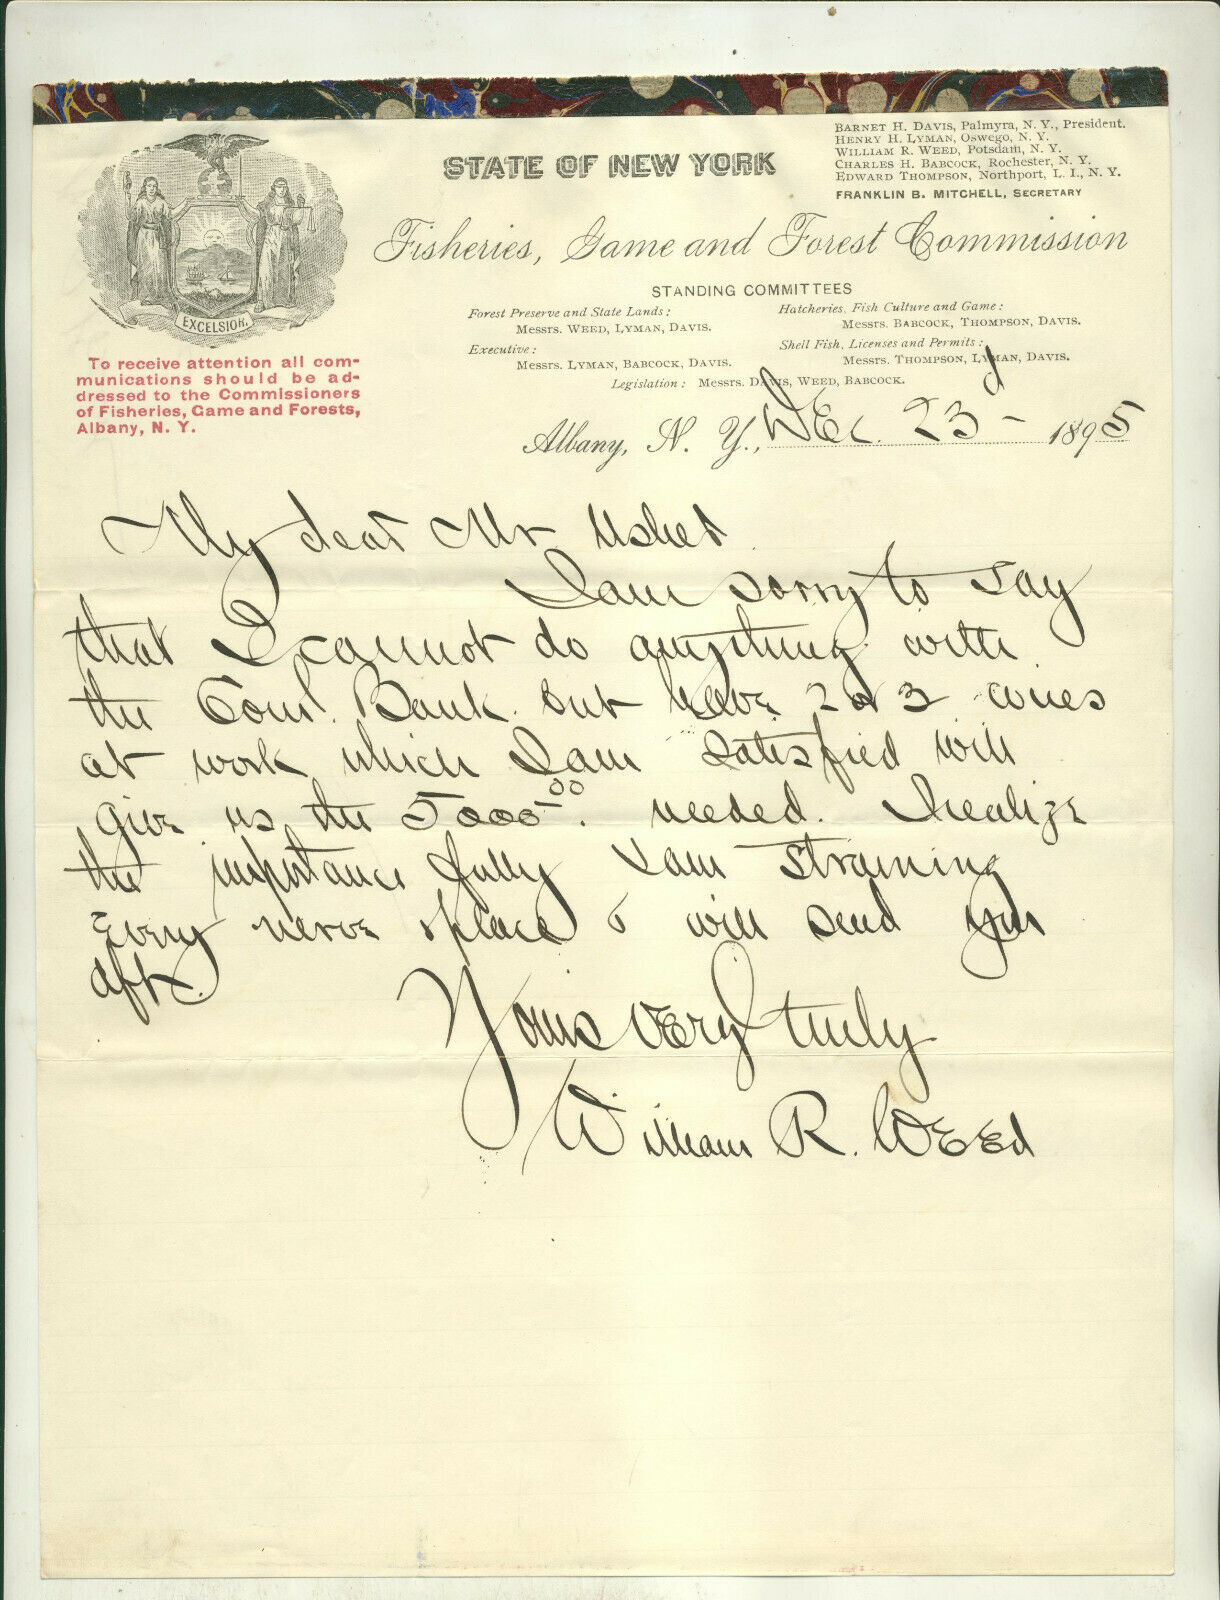 BARNET H. DAVIS, Palmyra, N. Y., President.
HENRY H. LYMAN, Oswego, N. Y.
WILLIAM R. WEED, Potsdam, N. Y.
CHARLES H. BABCOCK, Rochester, N. Y.
EDWARD THOMPSON, Northport, L. I., N. Y.
FRANKLIN B. MITCHELL, SECRETARY
STATE OF NEW YORK
Fisheries, Game and Forest Commission
EXCELSIOR.
To receive attention all com-
munications should be ad-
dressed to the Commissioners
of Fisheries, Game and Forests,
Albany, N. Y.
STANDING COMMITTEES
Forest Preserve and State Lands:
MESSRS. WEED, LYMAN, DAVIS.
Executive:
MESSRS. LYMAN, BABCOCK, DAVIS.
Hatcheries, Fish Culture and Game:
MESSRS. BABCOCK, THOMPSON, DAVIS.
Shell Fish, Licenses and Permits:
MESSRS. THOMPSON, LYMAN, DAVIS.
Legislation: MESSRS. DAVIS, WEED, BABCOCK.
Albany, N. Y., Dec. 23d - 1895
My dear Mr Usher
I am sorry to say
that I cannot do anything with
the Coml. Bank but have 2 or 3 wires
at work which I am satisfied will
give us the 5000 00. needed. I realize
the importance fully & am straining
every nerve & place & will send you
dft.
Yours very truly
William R. Weed